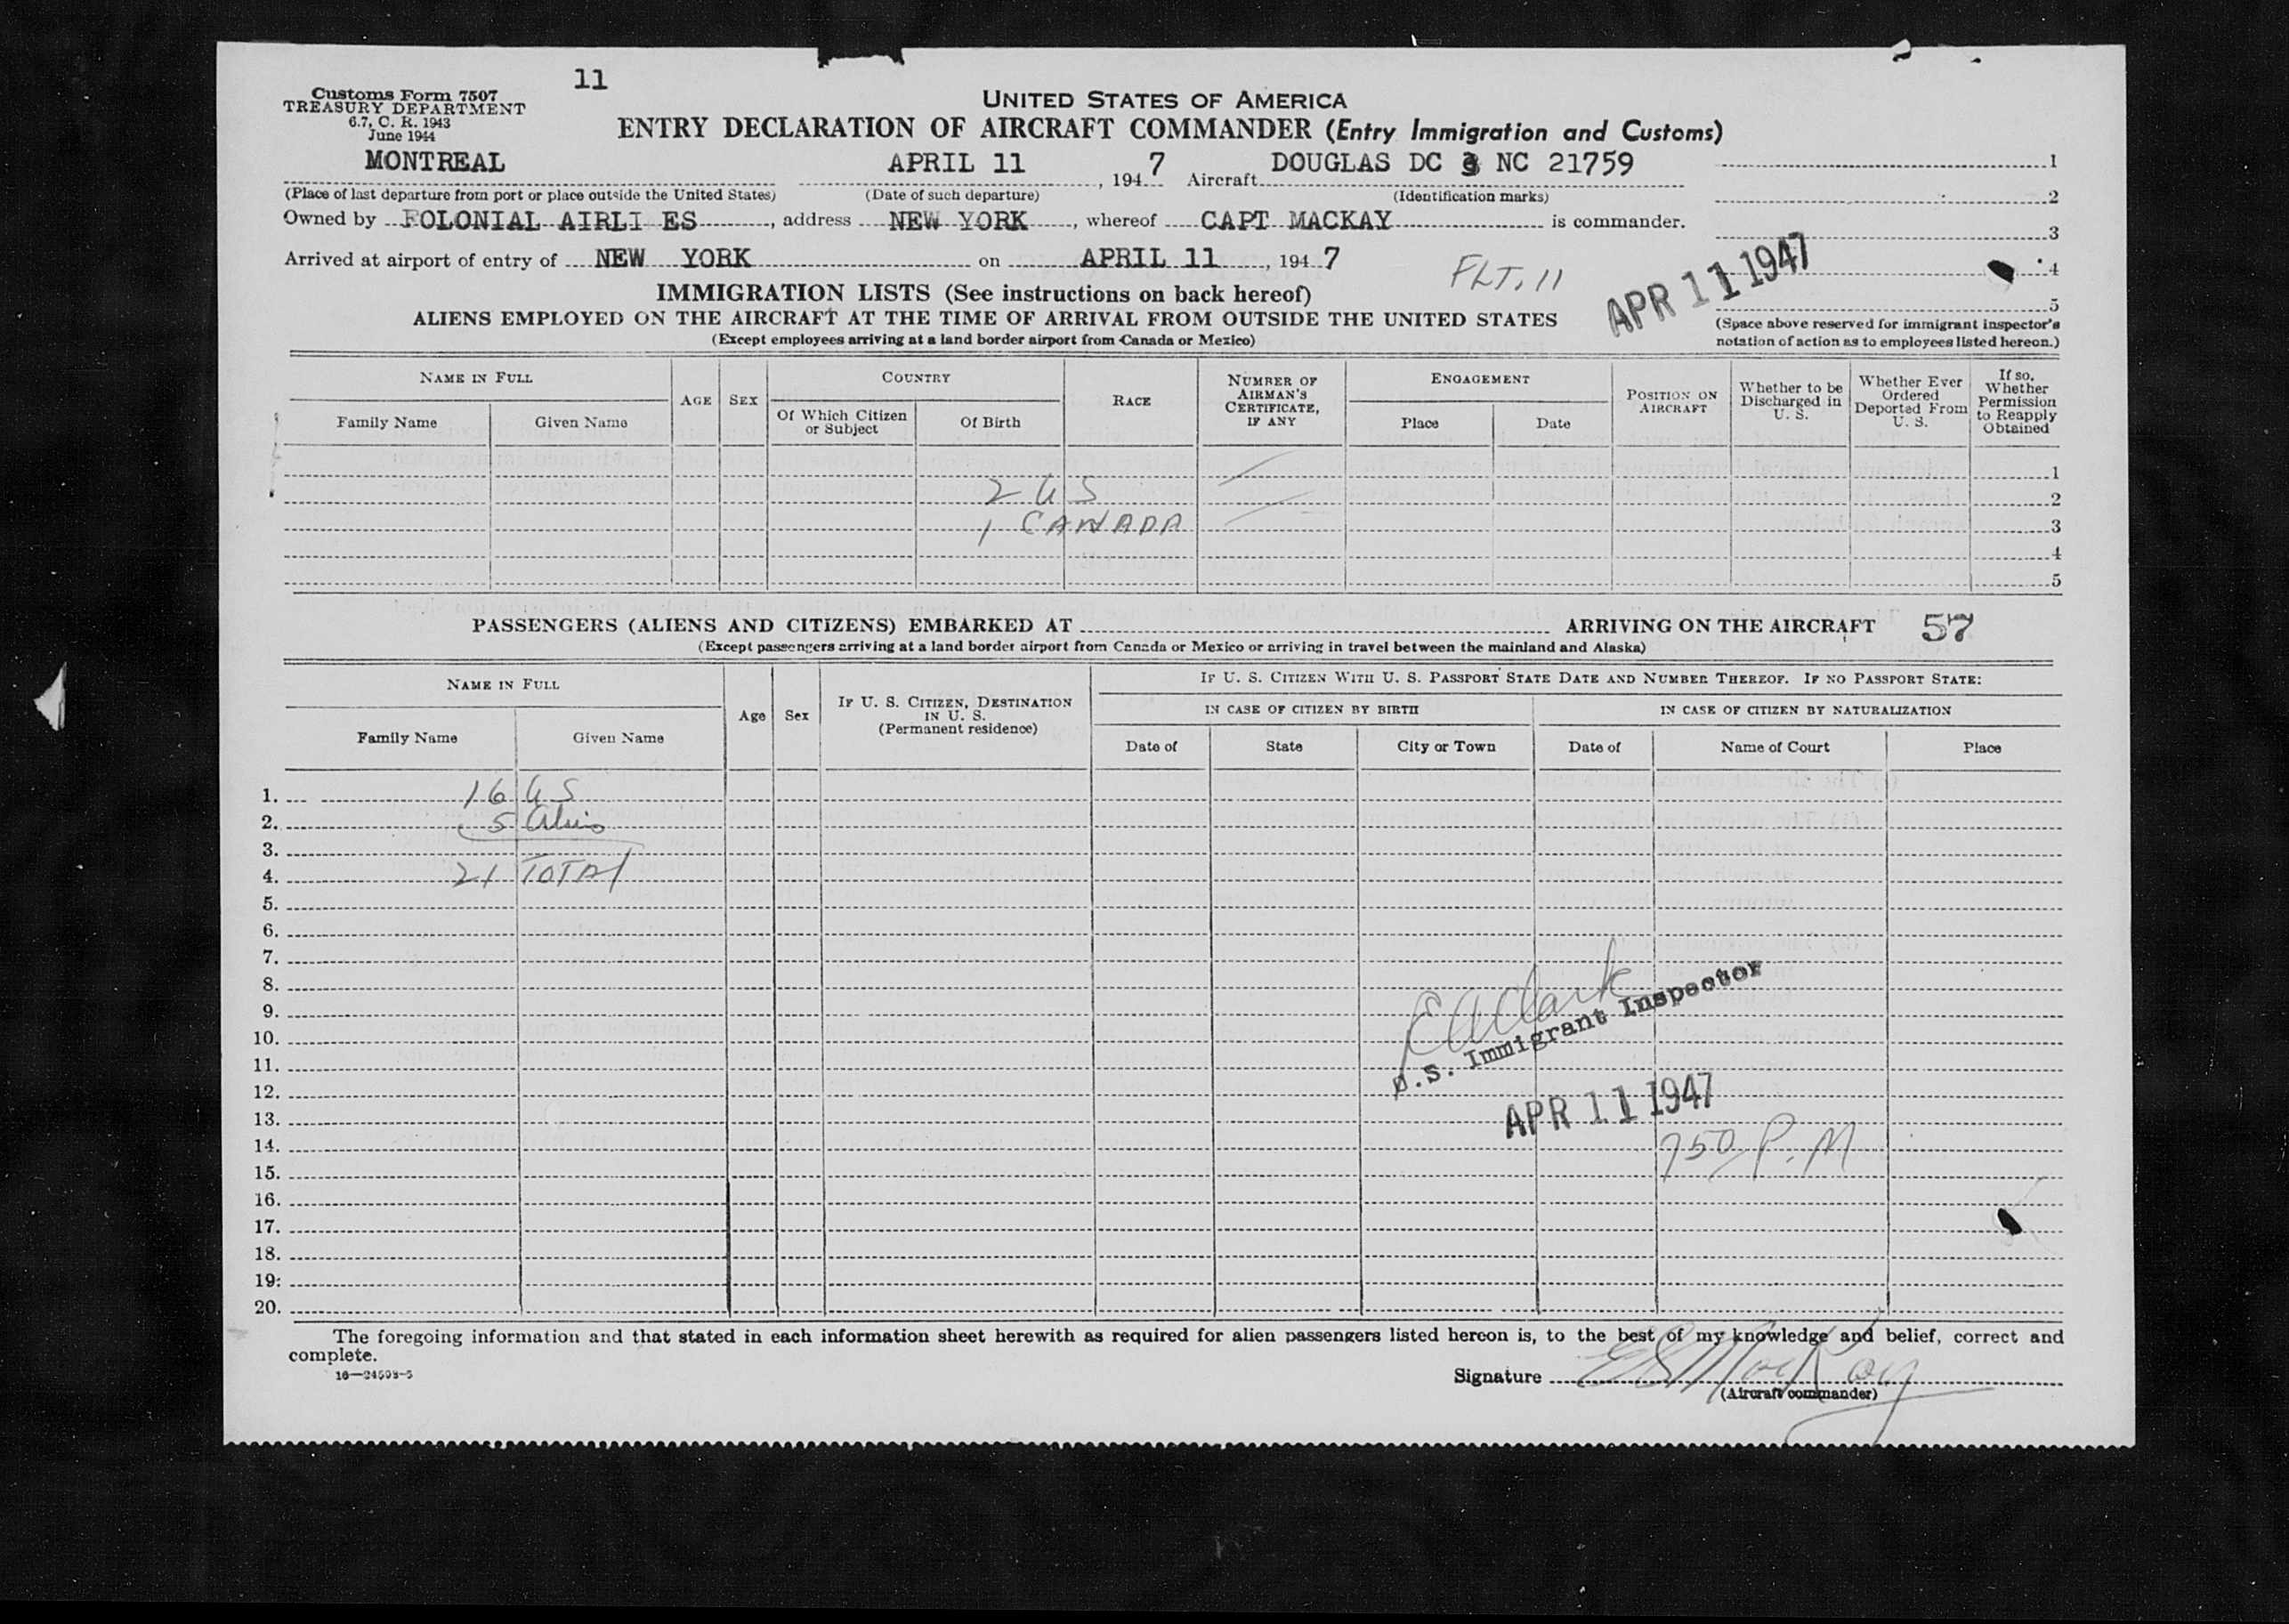 11
Customs Form 7507
TREASURY DEPARTMENT
6.7, C. R. 1943
June 1944
UNITED STATES OF AMERICA
ENTRY DECLARATION OF AIRCRAFT COMMANDER (Entry Immigration and Customs)
MONTREAL APRIL 11, 1947 Aircraft DOUGLAS DC 3 NC 21759
(Place of last departure from port or place outside the United States) (Date of such departure) (Identification marks)
Owned by FOLONIAL AIRLI ES, address NEW YORK, whereof CAPT MACKAY is commander.
Arrived at airport of entry of NEW YORK on APRIL 11, 1947
FLT. 11
APR 11 1947
1
2
3
4
5
(Space above reserved for immigrant inspector's
notation of action as to employees listed hereon.)
IMMIGRATION LISTS (See instructions on back hereof)
ALIENS EMPLOYED ON THE AIRCRAFT AT THE TIME OF ARRIVAL FROM OUTSIDE THE UNITED STATES
(Except employees arriving at a land border airport from Canada or Mexico)
NAME IN FULL
Family Name
Given Name
AGE
SEX
COUNTRY
Of Which Citizen
or Subject
Of Birth
RACE
NUMBER OF
AIRMAN'S
CERTIFICATE,
IF ANY
ENGAGEMENT
Place
Date
POSITION ON
AIRCRAFT
Whether to be
Discharged in
U. S.
Whether Ever
Ordered
Deported From
U. S.
If so,
Whether
Permission
to Reapply
Obtained
1
2 US 2
1 CANADA 3
4
5
PASSENGERS (ALIENS AND CITIZENS) EMBARKED AT ARRIVING ON THE AIRCRAFT 57
(Except passengers arriving at a land border airport from Canada or Mexico or arriving in travel between the mainland and Alaska)
NAME IN FULL
Family Name
Given Name
Age
Sex
IF U. S. CITIZEN, DESTINATION
IN U. S.
(Permanent residence)
IF U. S. CITIZEN WITH U. S. PASSPORT STATE DATE AND NUMBER THEREOF. IF NO PASSPORT STATE:
IN CASE OF CITIZEN BY BIRTH
Date of
State
City or Town
IN CASE OF CITIZEN BY NATURALIZATION
Date of
Name of Court
Place
1. 16 US
2. 5 Alien
3.
4. 21 TOTAL
5.
6.
7.
8.
9.
10.
11.
12.
13.
14.
15.
16.
17.
18.
19.
20.
EA Clark
U.S. Immigrant Inspector
APR 11 1947
750 P.M
The foregoing information and that stated in each information sheet herewith as required for alien passengers listed hereon is, to the best of my knowledge and belief, correct and
complete.
16—24598-5
Signature E S MacKay
(Aircraft commander)